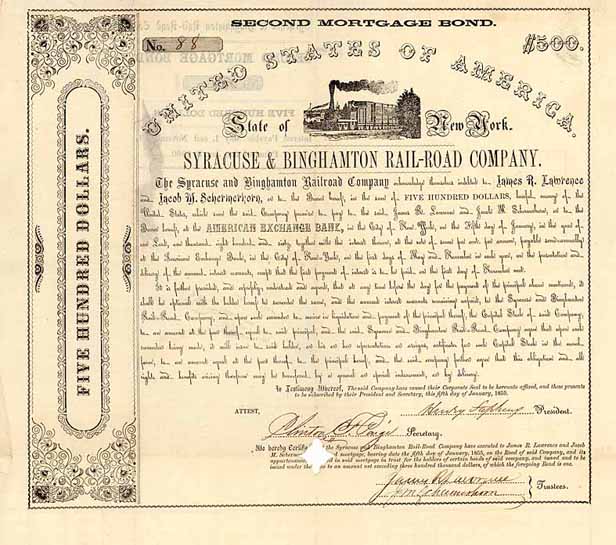 SECOND MORTGAGE BOND.
No. 88
$500.
UNITED STATES OF AMERICA.
State of New York.
SYRACUSE & BINGHAMTON RAIL-ROAD COMPANY.
FIVE HUNDRED DOLLARS.
The Syracuse and Binghamton Railroad Company acknowledge themselves indebted to James R. Lawrence
and Jacob M. Schermerhorn, or to the Bearer hereof, in the sum of FIVE HUNDRED DOLLARS, lawful money of the
United States, which sum the said Company promise to pay to the said James R. Lawrence and Jacob M. Schermerhorn, or to the
Bearer hereof, at the AMERICAN EXCHANGE BANK, in the City of New-York, on the Fifth day of January, in the year of
our Lord, one thousand eight hundred and sixty together with the interest thereon, at the rate of seven per cent. per annum, payable semi-annually
at the American Exchange Bank, in the City of New-York, on the first days of May and November in each year, on the presentation and
delivery of the annexed interest warrants, except that the first payment of interest is to be paid on the first day of November next.
It is further provided, and
that at any time before the day for the payment of the principal above mentioned, it
shall be optional with the holder hereof to surrender the same, and the annexed interest warrants remaining unpaid, to the Syracuse and Binghamton
Rail-Road Company, and upon such surrender to receive in liquidation and payment of the principal thereof, the Capital Stock of said Company,
to an amount at the par thereof, equal to said principal, and the said Syracuse and Binghamton Rail-Road Company agree that upon such
surrender being made, it will issue to said holder, or his or her representatives or assigns, certificates for such Capital Stock in the usual
form, to an amount equal at the par thereof to the principal hereof, and the said company further agree that this obligation and all
rights and benefits arising therefrom may be transferred by general or special indorsement, or by delivery.
In Testimony Whereof, The said Company have caused their Corporate Seal to be hereunto affixed, and these presents
to be subscribed by their President and Secretary, this fifth day of January, 1855.
ATTEST,
Henry Stephens President.
Clinton F. Paige Secretary.
We hereby Certify the Syracuse and Binghamton Rail-Road Company have executed to James R. Lawrence and Jacob
M. Scherm mortgage, bearing date the fifth day of January, 1855, on the Road of said Company, and its
appurtenances in said mortgage in trust for the holders of certain bonds of said company, issued and to be
issued under to an amount not exceeding three hundred thousand dollars, of which the foregoing Bond is one.
James R Lawrence
J M Schermerhorn
Trustees.